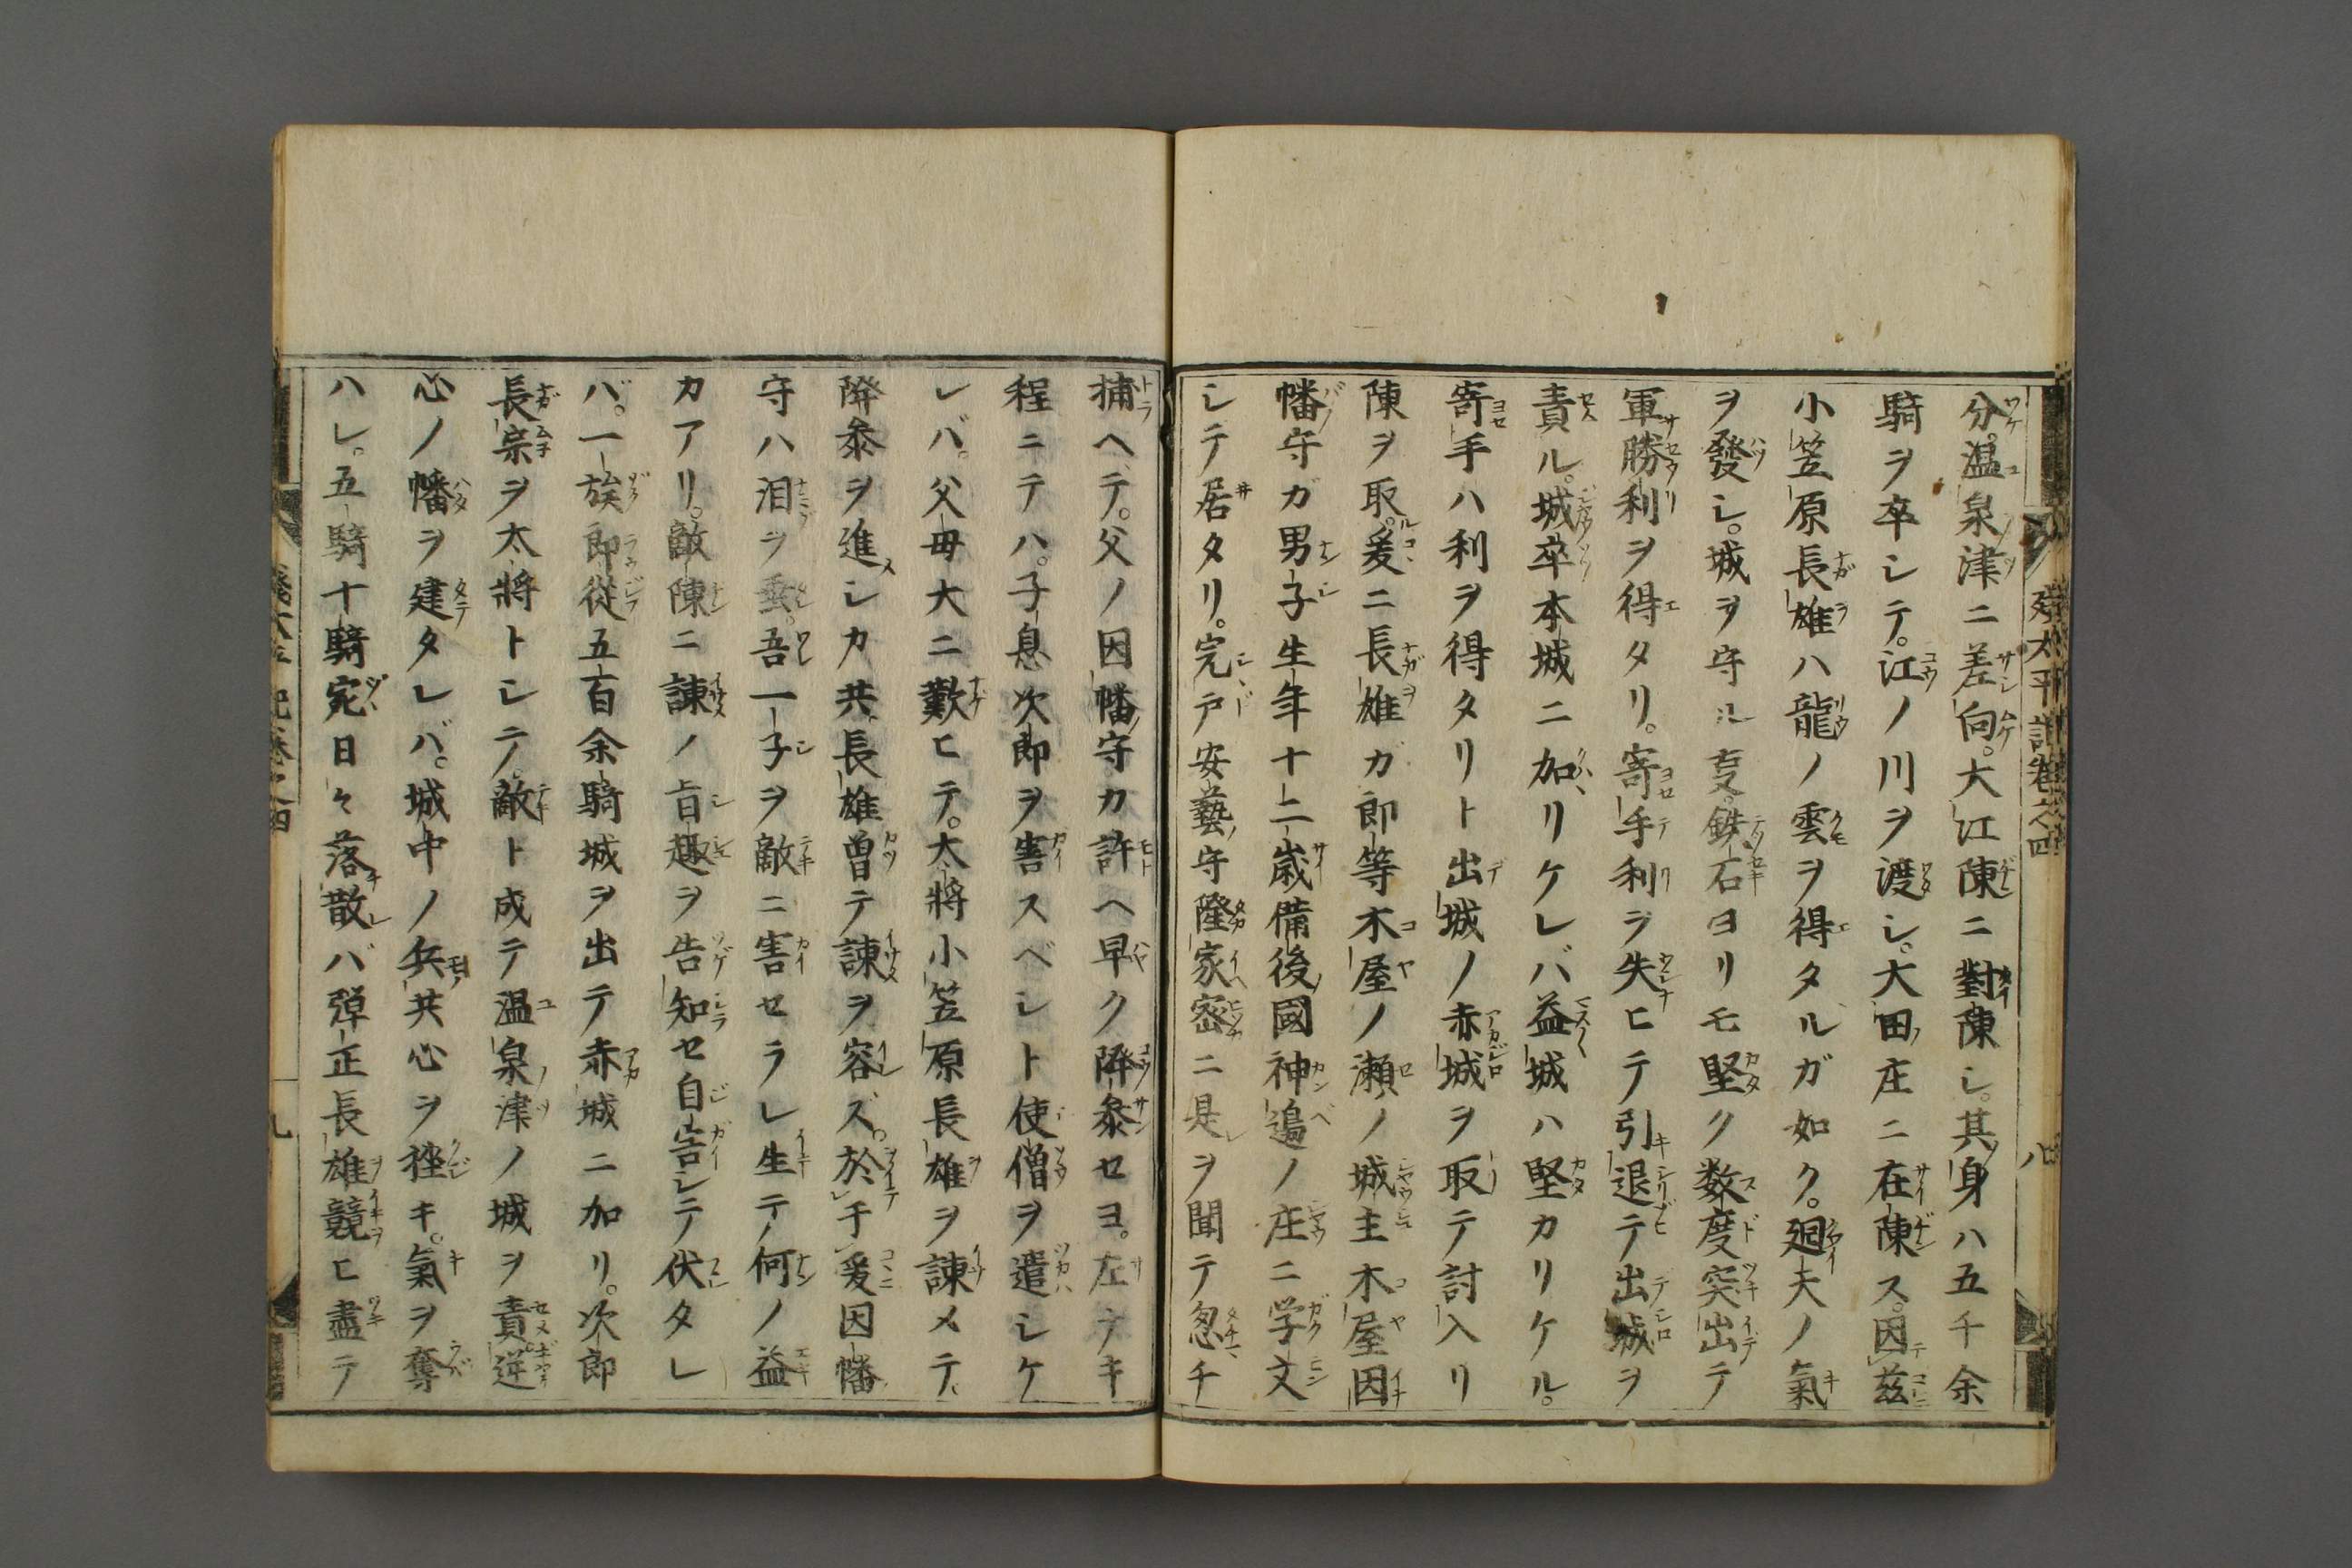 分。温泉津ニ差向。大江陳ニ對陳シ。其身ハ五千余
騎ヲ卒シテ。江ノ川ヲ渡シ。大田庄ニ在陳ス。因茲
小笠原長雄ハ龍ノ雲ヲ得タルガ如ク。廻天ノ氣
ヲ發シ。城ヲ守ル㕝。鉄石ヨリモ堅ク数度突出テ
軍勝利ヲ得タリ。寄手利ヲ失ヒテ引退テ出城ヲ
責ル。城卒本城ニ加リケレバ益城ハ堅カリケル。
寄手ハ利ヲ得タリト出城ノ赤城ヲ取テ討入リ
陳ヲ取。爰ニ長雄ガ郎等木屋ノ瀬ノ城主木屋因
幡守ガ男子生年十二歳備後國神邉ノ庄ニ学文
シテ居タリ。完戸安藝守隆家密ニ是ヲ聞テ忽チ
捕ヘテ。父ノ因幡守カ許ヘ早ク降参セヨ。左ナキ
程ニテハ。子息次郎ヲ害スベシト使僧ヲ遣シケ
レバ。父母大ニ歎ヒテ。大將小笠原長雄ヲ諫メテ
降参ヲ進シカ共。長雄曽テ諫ヲ容ズ。於于爰因幡
守ハ泪ヲ垂。吾一子ヲ敵ニ害セラレ生テ何ノ益
カアリ。敵陳ニ諫ノ旨趣ヲ告知セ自害シテ伏タレ
バ。一族郎従五百余騎城ヲ出テ赤城ニ加リ。次郎
長宗ヲ太將トシテ。敵ト成テ温泉津ノ城ヲ責。逆
心ノ幡ヲ建タレバ。城中ノ兵共心ヲ挫キ。氣ヲ奪
ハレ。五騎十騎宛日々落散バ弾正長雄競ヒ盡テ
残太平記巻之四
八
九